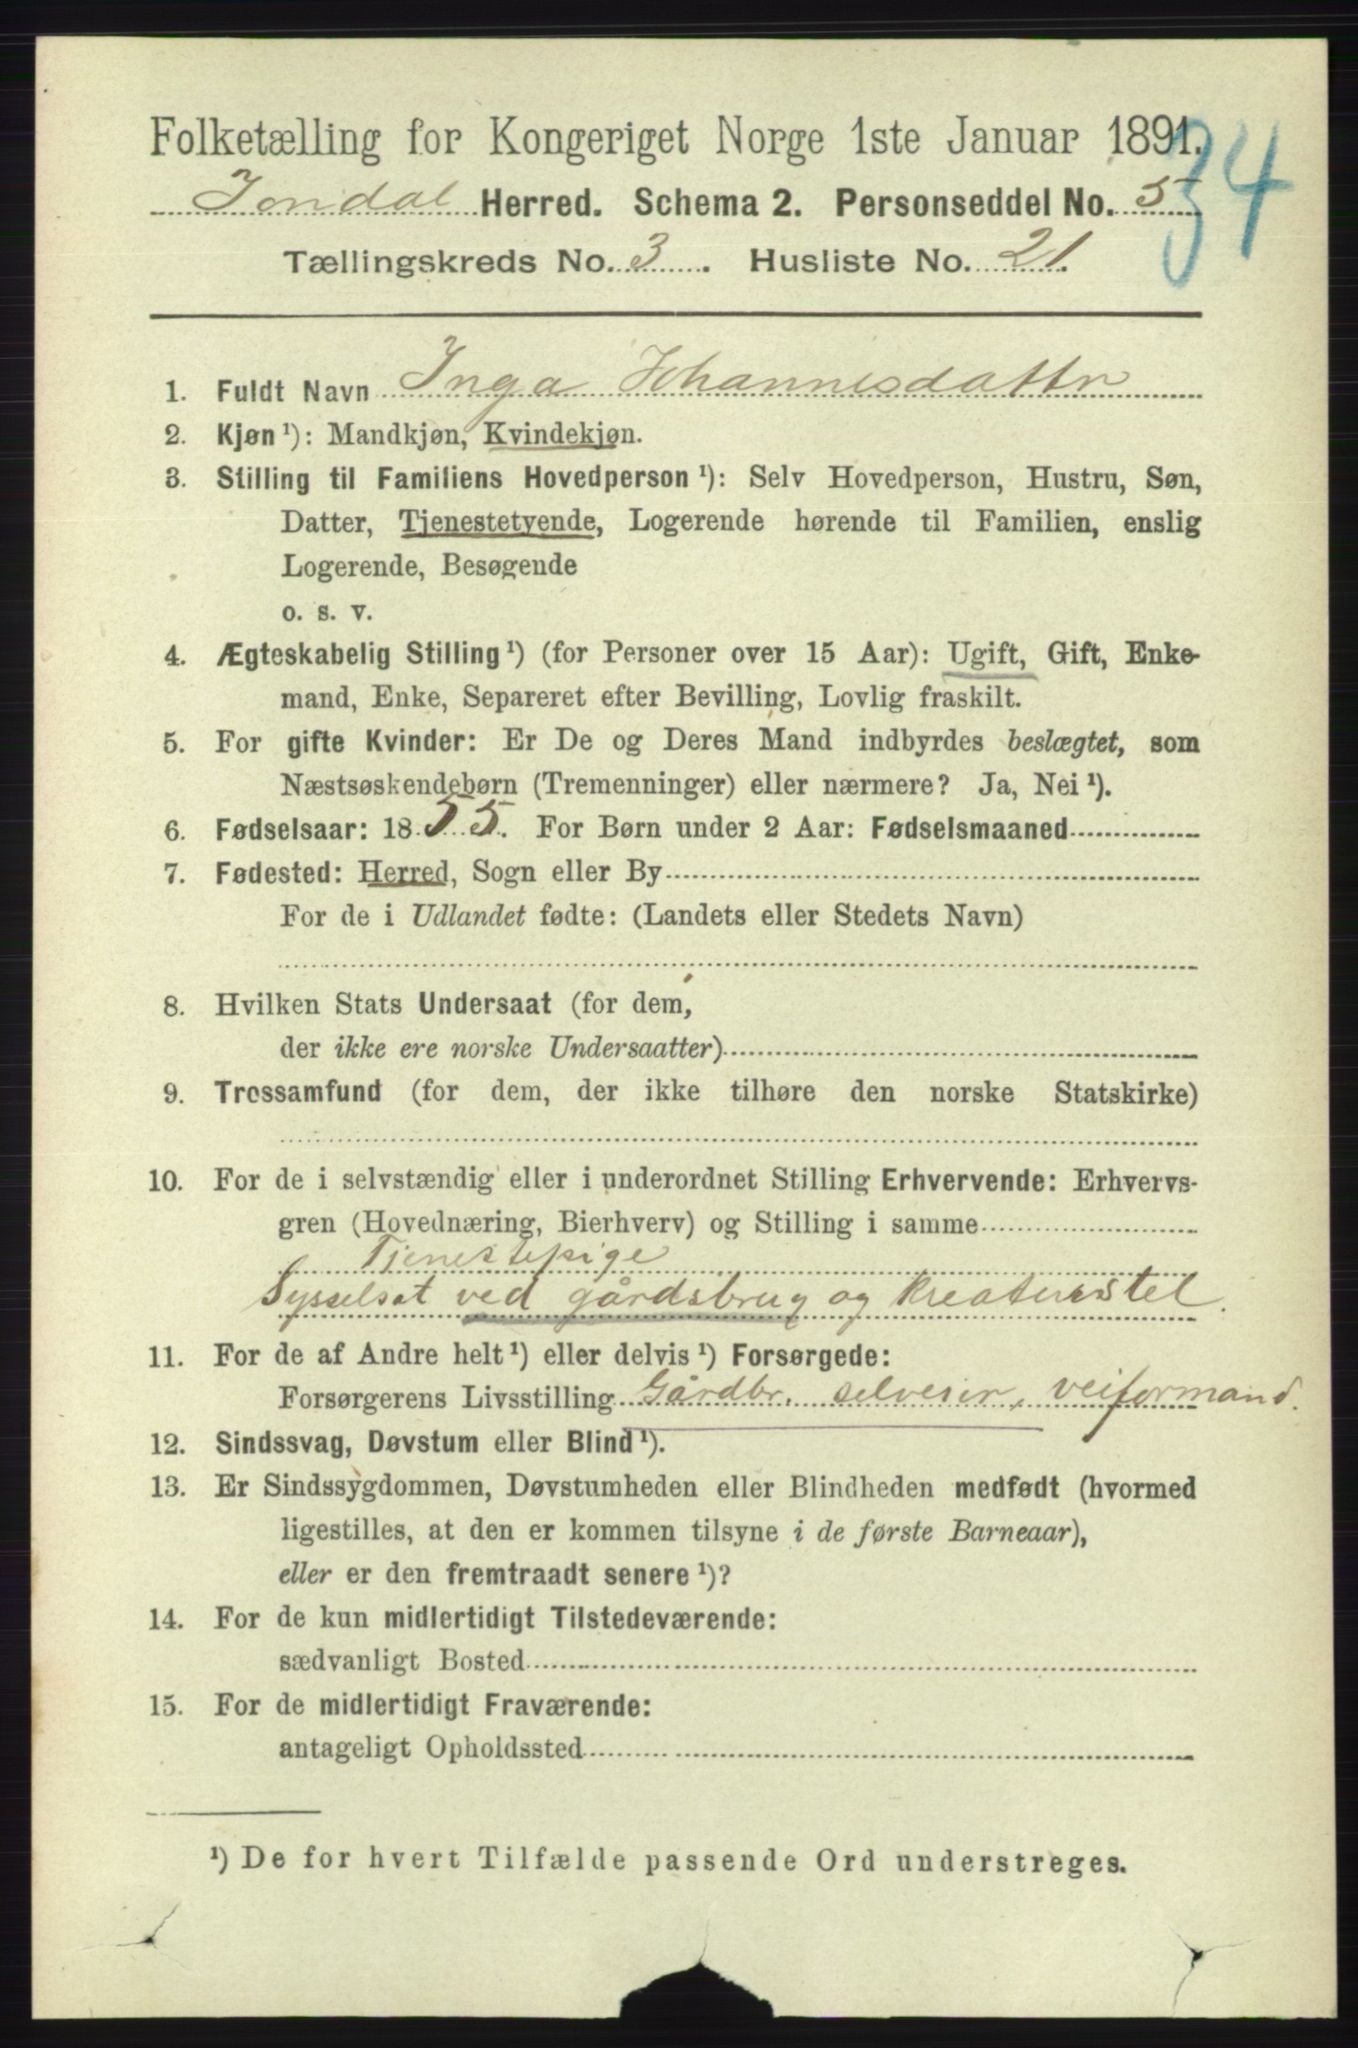 Folketælling for Kongeriget Norge 1ste Januar 1891.
34
Jondal Herred. Schema 2. Personseddel No. 5
Tællingskreds No. 3. Husliste No. 21.
1. Fuldt Navn Inga Johannesdattr
2. Kjøn ¹): Mandkjøn, Kvindekjøn.
3. Stilling til Familiens Hovedperson ¹): Selv Hovedperson, Hustru, Søn,
Datter, Tjenestetyende, Logerende hørende til Familien, enslig
Logerende, Besøgende
o. s. v.
4. Ægteskabelig Stilling ¹) (for Personer over 15 Aar): Ugift, Gift, Enke-
mand, Enke, Separeret efter Bevilling, Lovlig fraskilt.
5. For gifte Kvinder: Er De og Deres Mand indbyrdes beslægtet, som
Næstsøskendebørn (Tremenninger) eller nærmere? Ja, Nei ¹).
6. Fødselsaar: 1855. For Børn under 2 Aar: Fødselsmaaned
7. Fødested: Herred, Sogn eller By
For de i Udlandet fødte: (Landets eller Stedets Navn)
8. Hvilken Stats Undersaat (for dem,
der ikke ere norske Undersaatter)
9. Trossamfund (for dem, der ikke tilhøre den norske Statskirke)
10. For de i selvstændig eller i underordnet Stilling Erhvervende: Erhvervs-
gren (Hovednæring, Bierhverv) og Stilling i samme
Tjenestepige
Sysselsat ved gårdsbrug og kreaturstel.
11. For de af Andre helt ¹) eller delvis ¹) Forsørgede:
Forsørgerens Livsstilling Gårdbr. selveier, veiformand.
12. Sindssvag, Døvstum eller Blind ¹).
13. Er Sindssygdommen, Døvstumheden eller Blindheden medfødt (hvormed
ligestilles, at den er kommen tilsyne i de første Barneaar),
eller er den fremtraadt senere ¹)?
14. For de kun midlertidigt Tilstedeværende:
sædvanligt Bosted
15. For de midlertidigt Fraværende:
antageligt Opholdssted
¹) De for hvert Tilfælde passende Ord understreges.